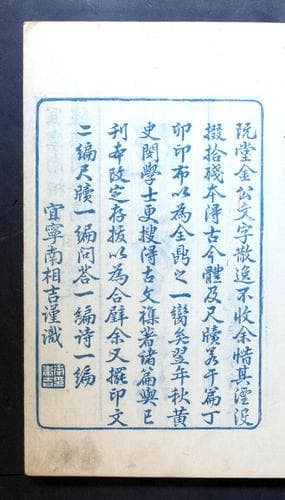 阮堂金公文字散逸不收余惜其湮没
掇拾殘本得古今體及尺牘若干篇丁
卯印布以為全鼎之一臠矣翌年秋黃
史閔學士更搜得古文襍著諸篇與已
刊本改定存拔以為合璧余又擺印文
二編尺牘一編問答一編詩一編
宜寧南相吉謹識